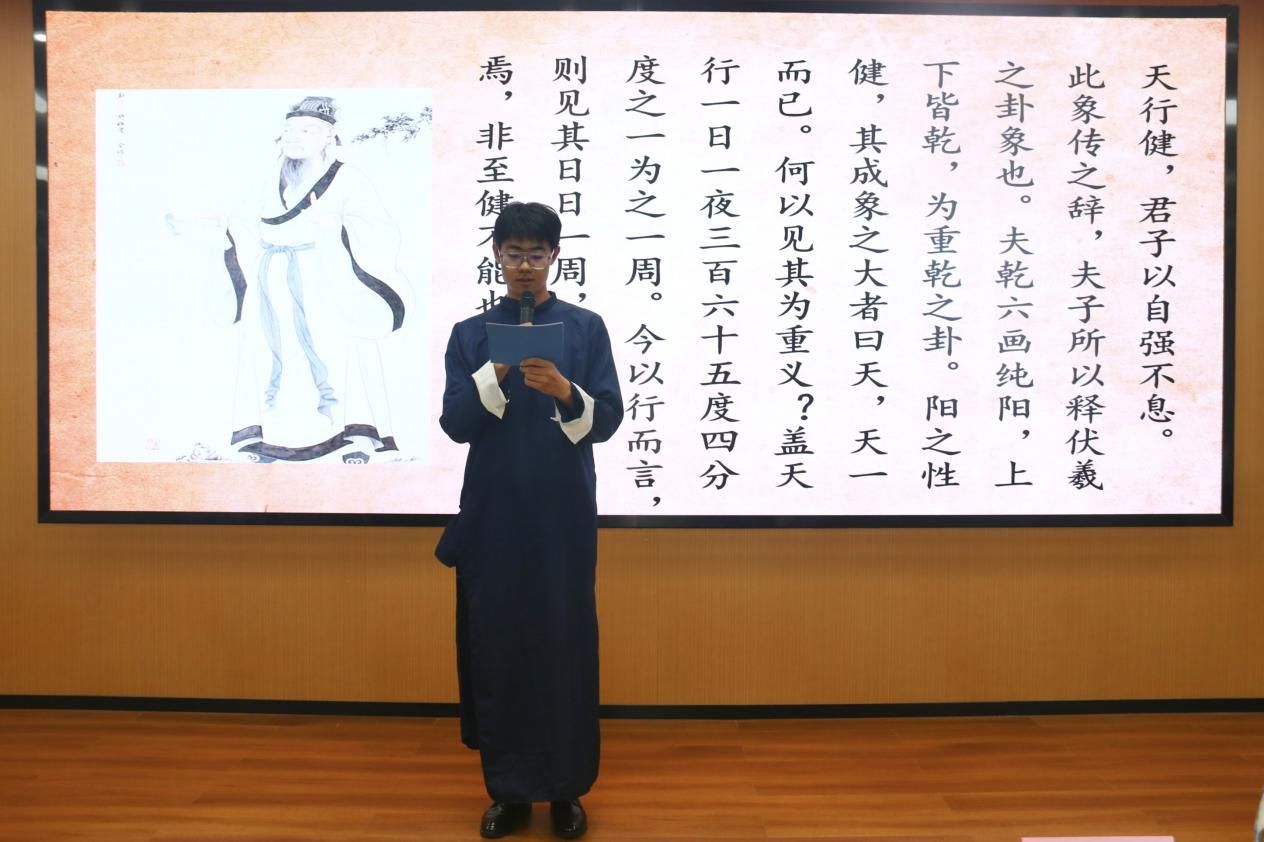 天行健，君子以自强不息。
此象传之辞，夫子所以释伏羲
之卦象也。夫乾六画纯阳，上
下皆乾，为重乾之卦。阳之性
健，其成象之大者曰天，天一
而已。何以见其为重义？盖天
行一日一夜三百六十五度四分
度之一为之一周。今以行而言，
则见其日日一周，
焉，非至健不能也